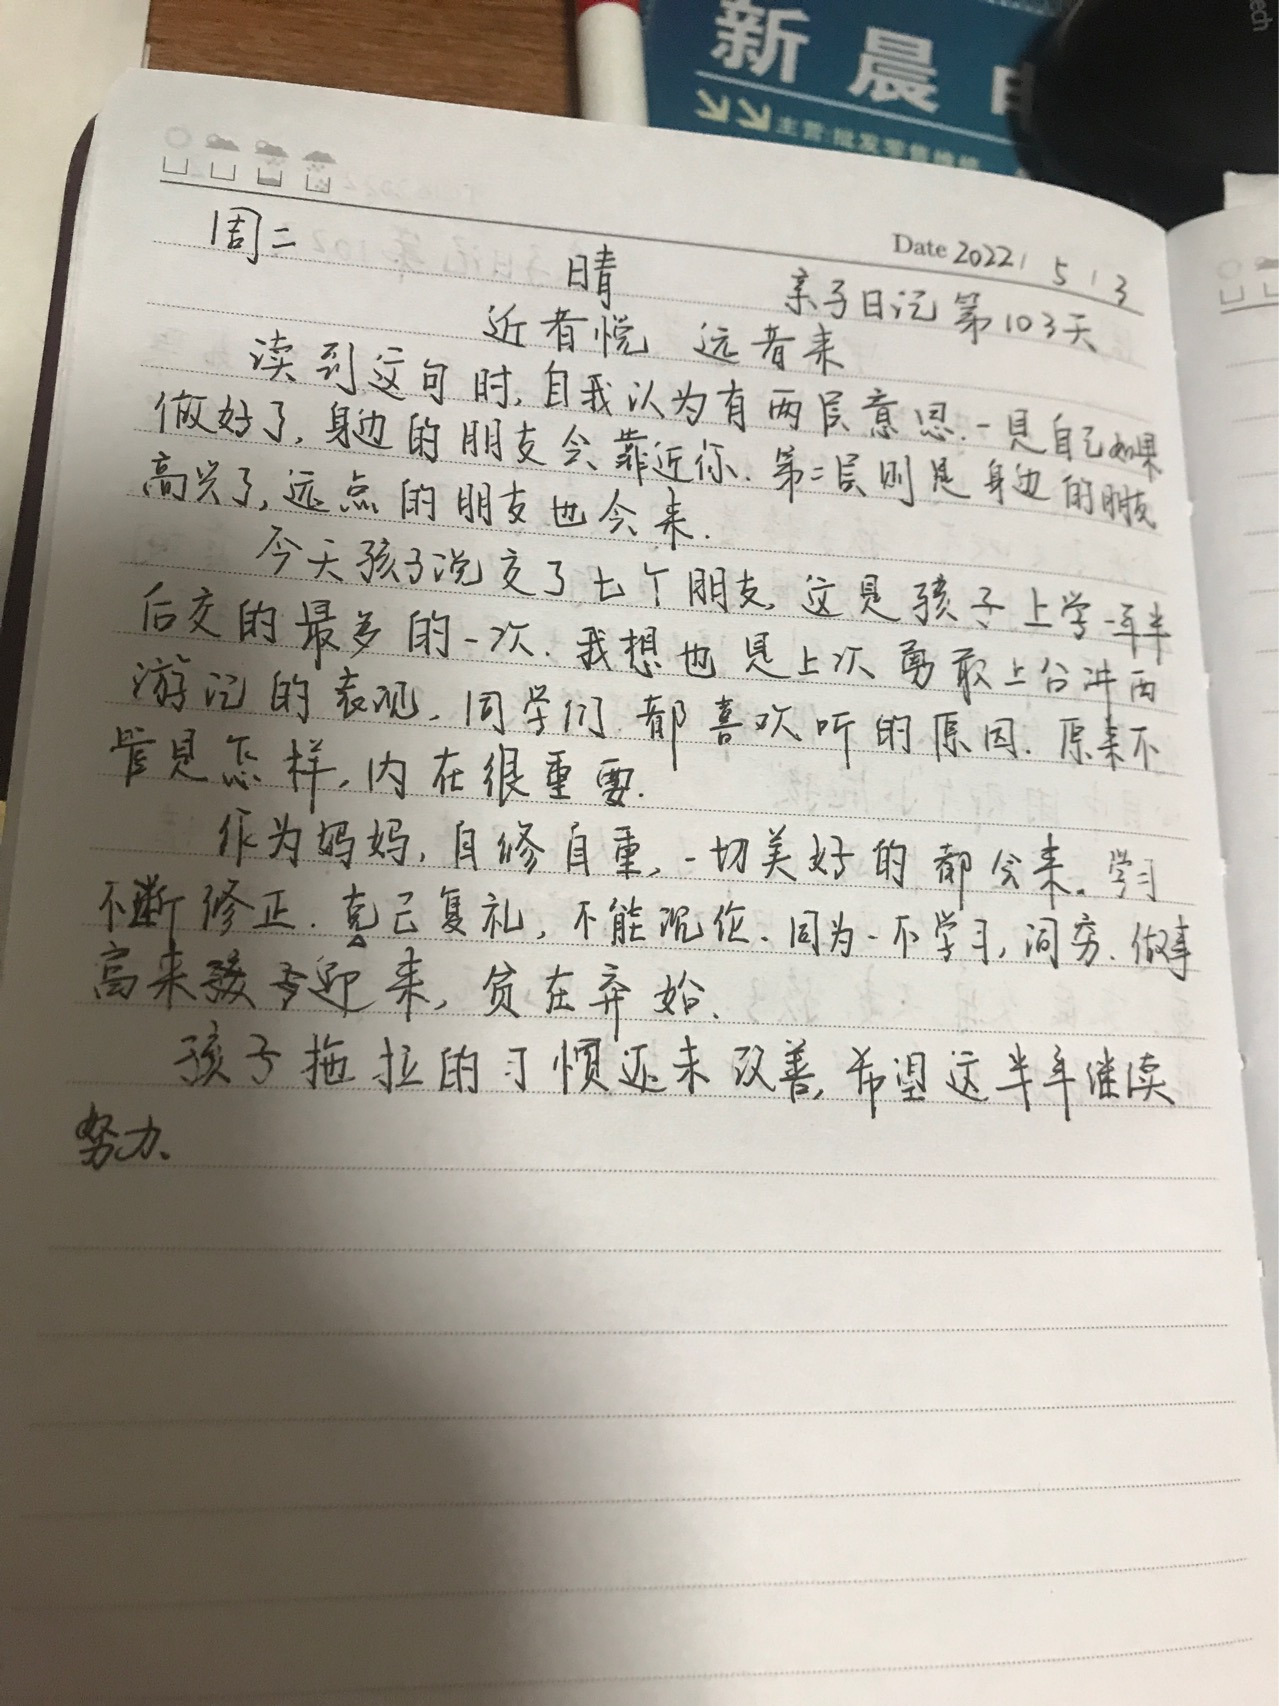 新晨电
主营:批发零售维修
ech
Date 2022 / 5 / 3
周二
晴
亲子日记第103天
近者悦 远者来
读到这句时,自我认为有两层意思.一是自己如果
做好了,身边的朋友会靠近你.第二层则是身边的朋友
高兴了,远点的朋友也会来.
今天孩子说交了七个朋友,这是孩子上学一年半
后交的最多的一次.我想也是上次勇敢上台讲西
游记的表现,同学们都喜欢听的原因.原来不
管是怎样,内在很重要.
作为妈妈,自修自重,一切美好的都会来。学习
不断修正.克己复礼,不能沉
不学习,
做事
高来
迎来,贫在弃始.
孩子拖拉的习惯还未改善,希望这半年继续
努力、